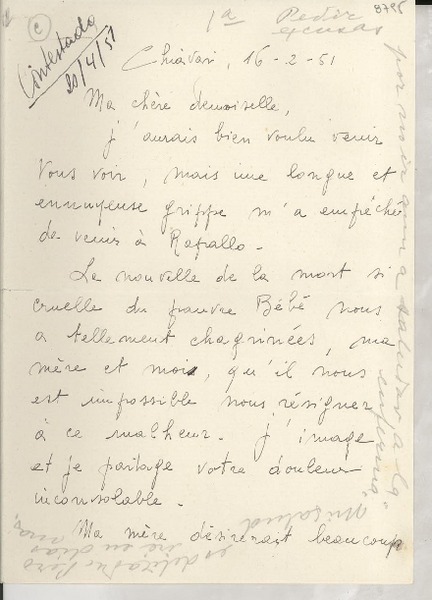 8795
1ª Pedir
excusas
Contestada
20/4/51
Chiavari, 16-2-51
Ma chère demoiselle,
j'aurais bien voulu venir
vous voir, mais une longue et
ennuyeuse grippe m'a empêché
de venir à Rapallo.
Le nouvelle de la mort si
cruelle du pauvre Bébé nous
a tellement chagrinées, ma
mère et moi, qu'il nous
est impossible nous résigner
à ce malheur. J'image
et je partage votre douleur
inconsolable.
Ma mère désirerait beaucoup
por no ir aún a saludar a la
enferma"
mi salud
es delicada. Pero
iré en días
más.